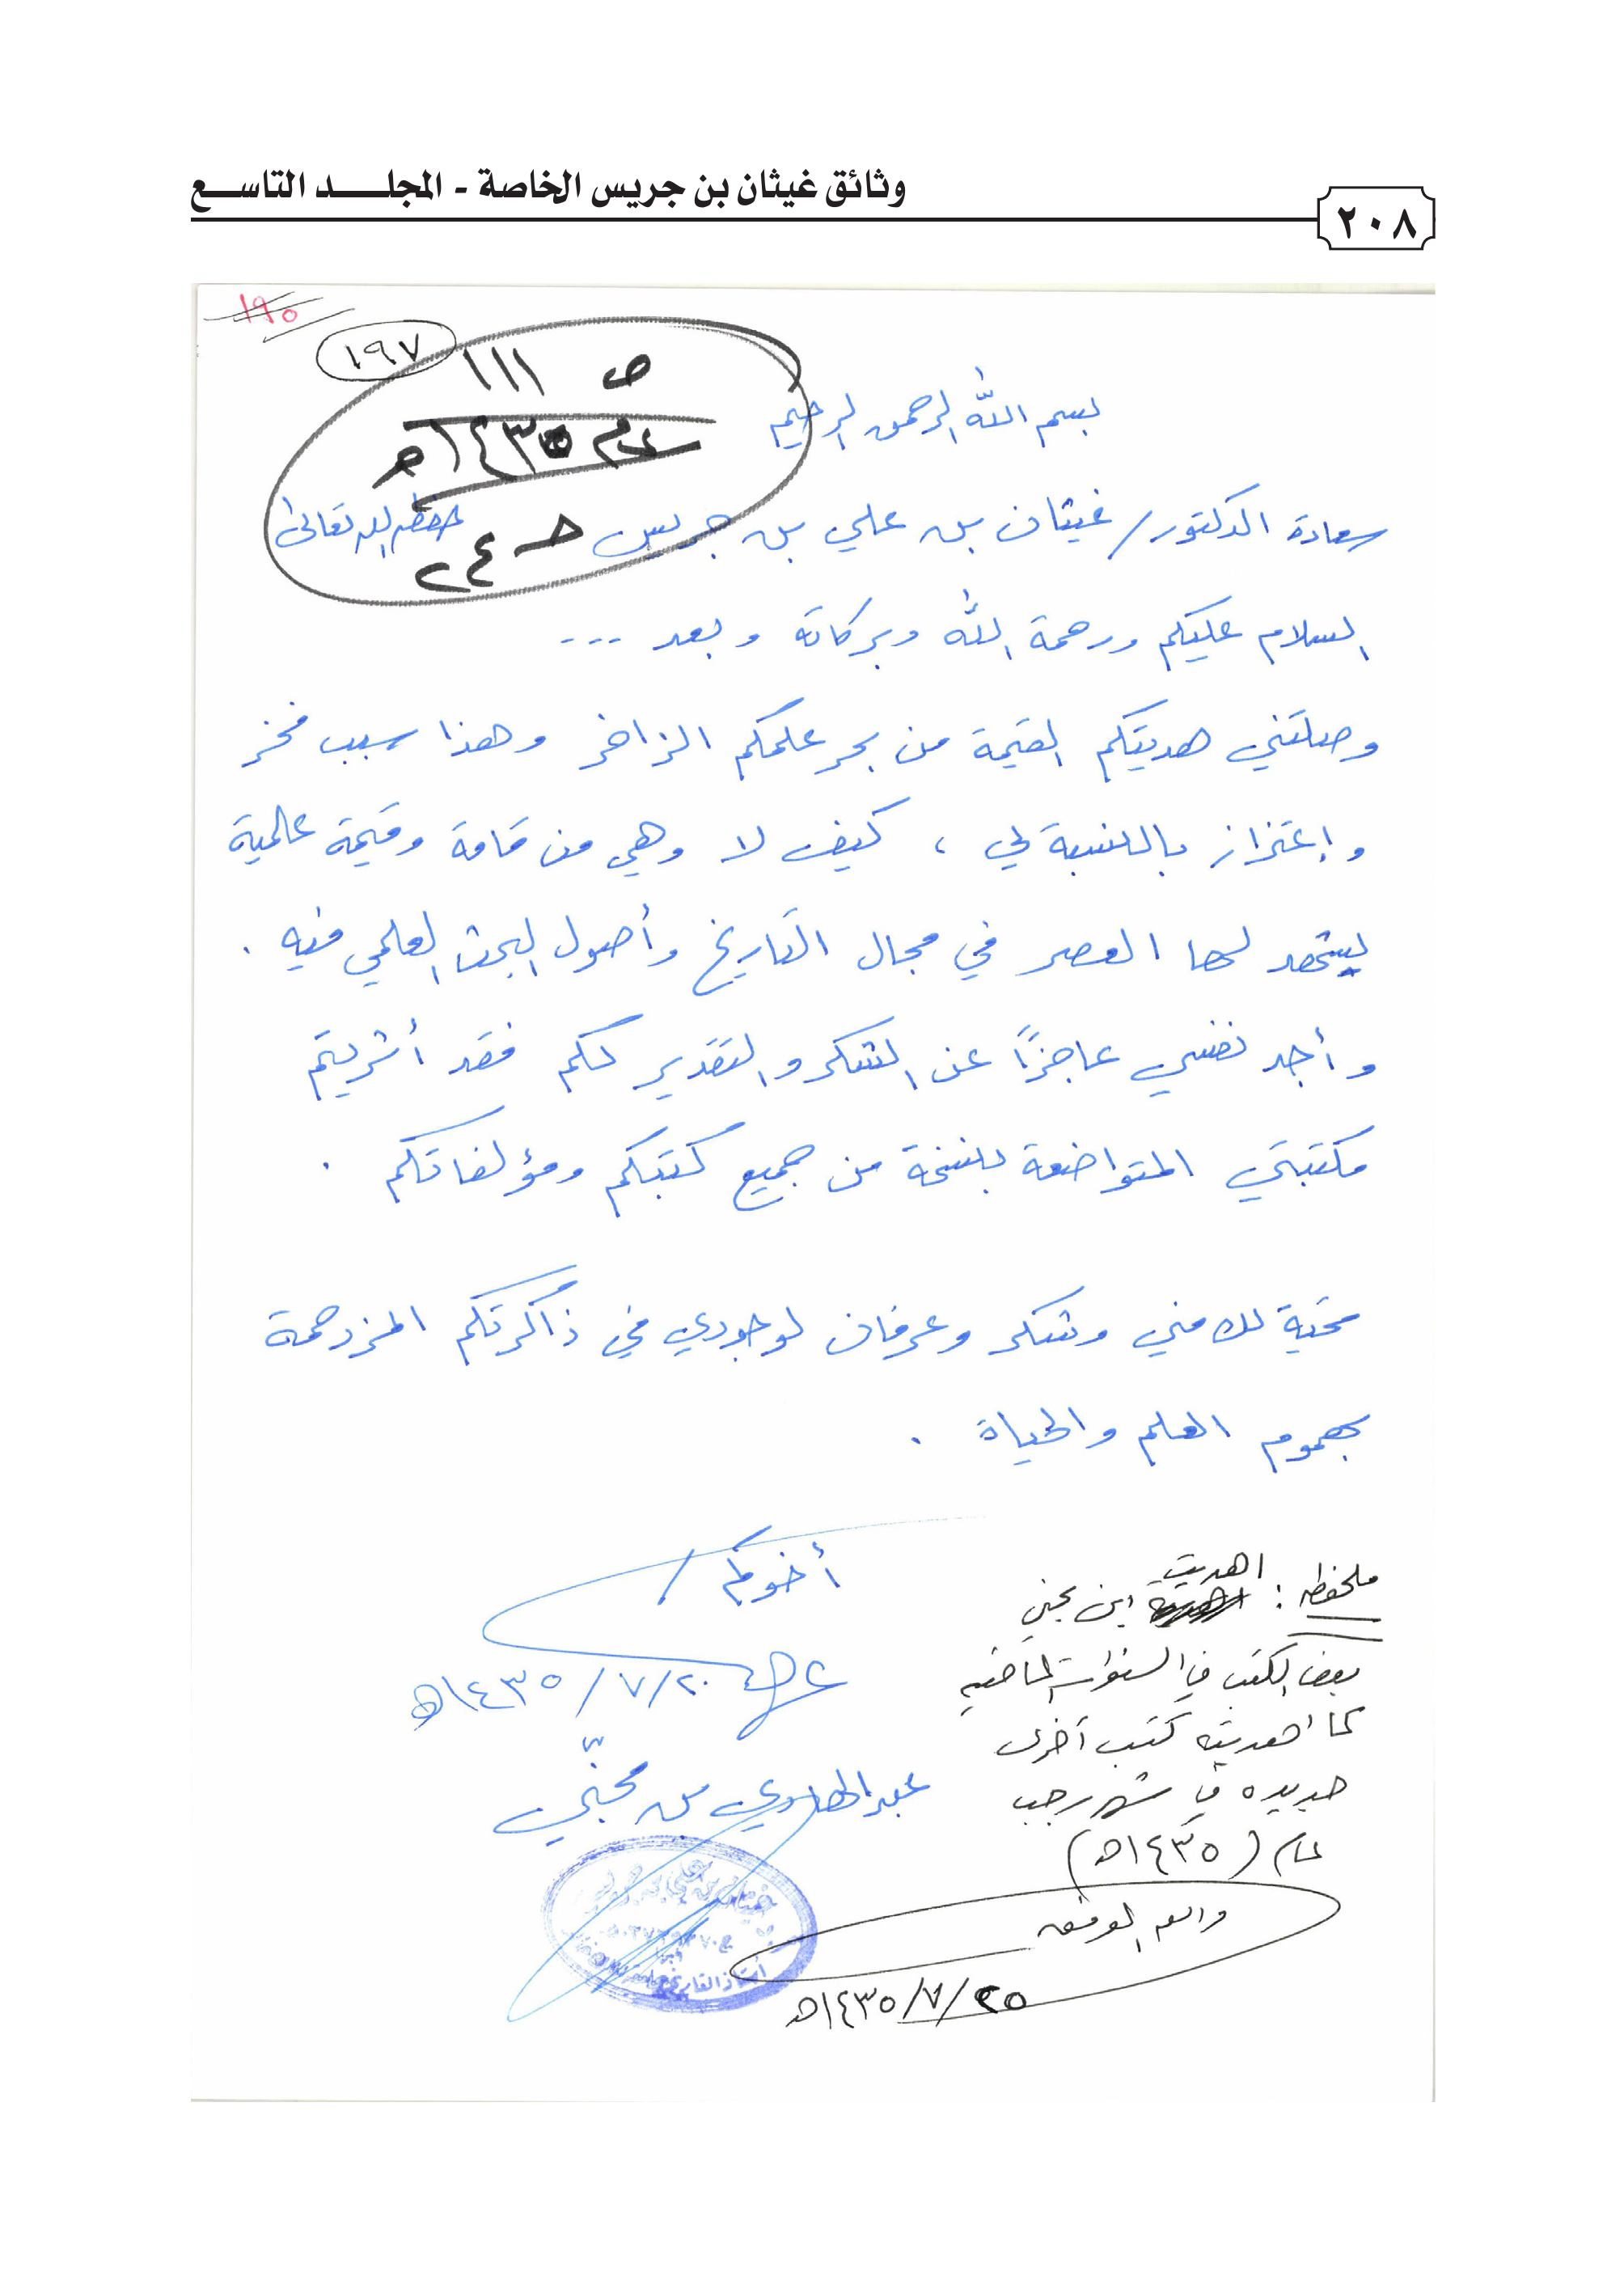 وثائق غيثان بن جريس الخاصة - المجلـــد التاســـع
٢٠٨
١٩٥
١٩٧
ص ١١١
عام ١٤٣٥هـ
حـ ٢٤
بسم الله الرحمن الرحيم
سعادة الدكتور/ غيثان بن علي بن جريس حفظه الله تعالى
السلام عليكم ورحمة الله وبركاته وبعد ...
وصلتني هديتكم القيمة من بحر علمكم الزاخر وهذا سبب فخر
وإعتزاز بالنسبة لي ، كيف لا وهي من قامة وقيمة عالمية
يشهد لها العصر في مجال التاريخ وأصول البحث العلمي فيه .
وأجد نفسي عاجزاً عن الشكر والتقدير لكم فقد أثريتم
مكتبتي المتواضعة بنسخة من جميع كتبكم ومؤلفاتكم .
تحية لك مني وشكر وعرفان لوجودي في ذاكرتكم المزدحمة
بهموم العلم والحياة .
أخوكم /
٢٠/٧/١٤٣٥هـ
عبدالهادي بن مجنّي
ملحفظه : اهديت ابن مجني
بعض الكتب في السنوات الماضيه
كما اهديته كتب آخرى
جديده في شهر رجب
عام (١٤٣٥هـ)
والله الموفق
٢٥/٧/١٤٣٥هـ
غيثان بن علي بن جريس
أستاذ التاريخ